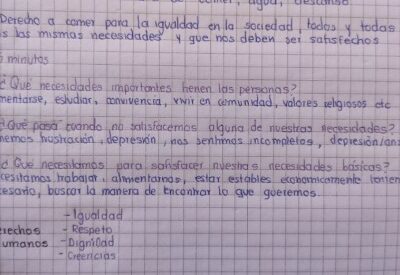 comer, agua, descanso
Derecho a comer para la igualdad en la sociedad, todos y todas
s las mismas necesidades y que nos deben ser satisfechos
minutos
¿Qué necesidades importantes tienen las personas?
mentarse, estudiar, convivencia, vivir en comunidad, valores religiosos etc
¿Qué pasa cuando no satisfacemos alguna de nuestras necesidades?
nemos frustración, depresión, nos sentimos incompletos, depresión/ans
¿Qué necesitamos para satisfacer nuestras necesidades básicas?
cesitamos trabajar, alimentarnos, estar estables económicamente
cesario, buscar la manera de encontrar lo que queremos.
- Igualdad
rechos - Respeto
umanos - Dignidad
- Creencias